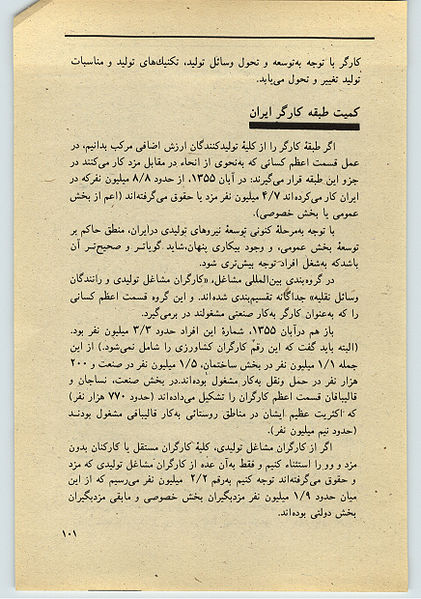 کارگر با توجه به‌توسعه و تحول وسائل تولید، تکنیك‌های تولید و مناسبات
تولید تغییر و تحول می‌یابد.
کمیت طبقه کارگر ایران
اگر طبقهٔ کارگر را از کلیهٔ تولیدکنندگان ارزش اضافی مرکب بدانیم، در
عمل قسمت اعظم کسانی که به‌نحوی از انحاء در مقابل مزد کار می‌کنند در
جزو این طبقه قرار می‌گیرند: در آبان ۱۳۵۵، از حدود ۸/۸ میلیون نفرکه در
ایران کار می‌کرده‌اند ۴/۷ میلیون نفر مزد یا حقوق می‌گرفته‌اند (اعم از بخش
عمومی یا بخش خصوصی).
با توجه به‌مرحلهٔ کنونی توسعهٔ نیروهای تولیدی درایران، منطق حاکم بر
توسعهٔ بخش عمومی، و وجود بیکاری پنهان،شاید گویاتـر و صحیح‌تـر آن
باشدکه به‌شغل افراد توجه بیش‌تری شود.
در گروه‌بندی بین‌المللی مشاغل، «کارگران مشاغل تولیدی و رانندگان
وسائل نقلیه» جداگانه تقسیم‌بندی شده‌اند. و این گروه قسمت اعظم کسانی
را که به‌عنوان کارگر به‌کار صنعتی مشغولند در برمی‌گیرد.
باز هم درآبان ۱۳۵۵، شمارهٔ این افراد حدود ۳/۳ میلیون نفر بود.
(البته باید گفت که این رقم کارگران کشاورزی را شامل نمی‌شود.) از این
جمله ۱/۱ میلیون نفر در بخش ساختمان، ۱/۵ میلیون نفر در صنعت و ۲۰۰
هزار نفر در حمل ونقل به‌کار مشغول بوده‌اند.در بخش صنعت، نساجان و
قالیبافان قسمت اعظم کارگران را تشکیل می‌داده‌اند (حدود ۷۷۰ هزار نفر)
که اکثریت عظیم ایشان در مناطق روستائی به‌کار قالیبافی مشغول بودنـد
(حدود نیم میلیون نفر).
اگر از کارگران مشاغل تولیدی، کلیهٔ کارگران مستقل یا کارکنان بدون
مزد و وو را استثناء کنیم و فقط به‌آن عده از کارگران مشاغل تولیدی که مزد
و حقوق می‌گرفته‌اند توجه کنیم به‌رقم ۲/۲ میلیون نفر می‌رسیم که از این
میان حدود ۱/۹ میلیون نفر مزدبگیران بخش خصوصی و مابقی مزدبگیران
بخش دولتی بوده‌اند.
۱۰۱